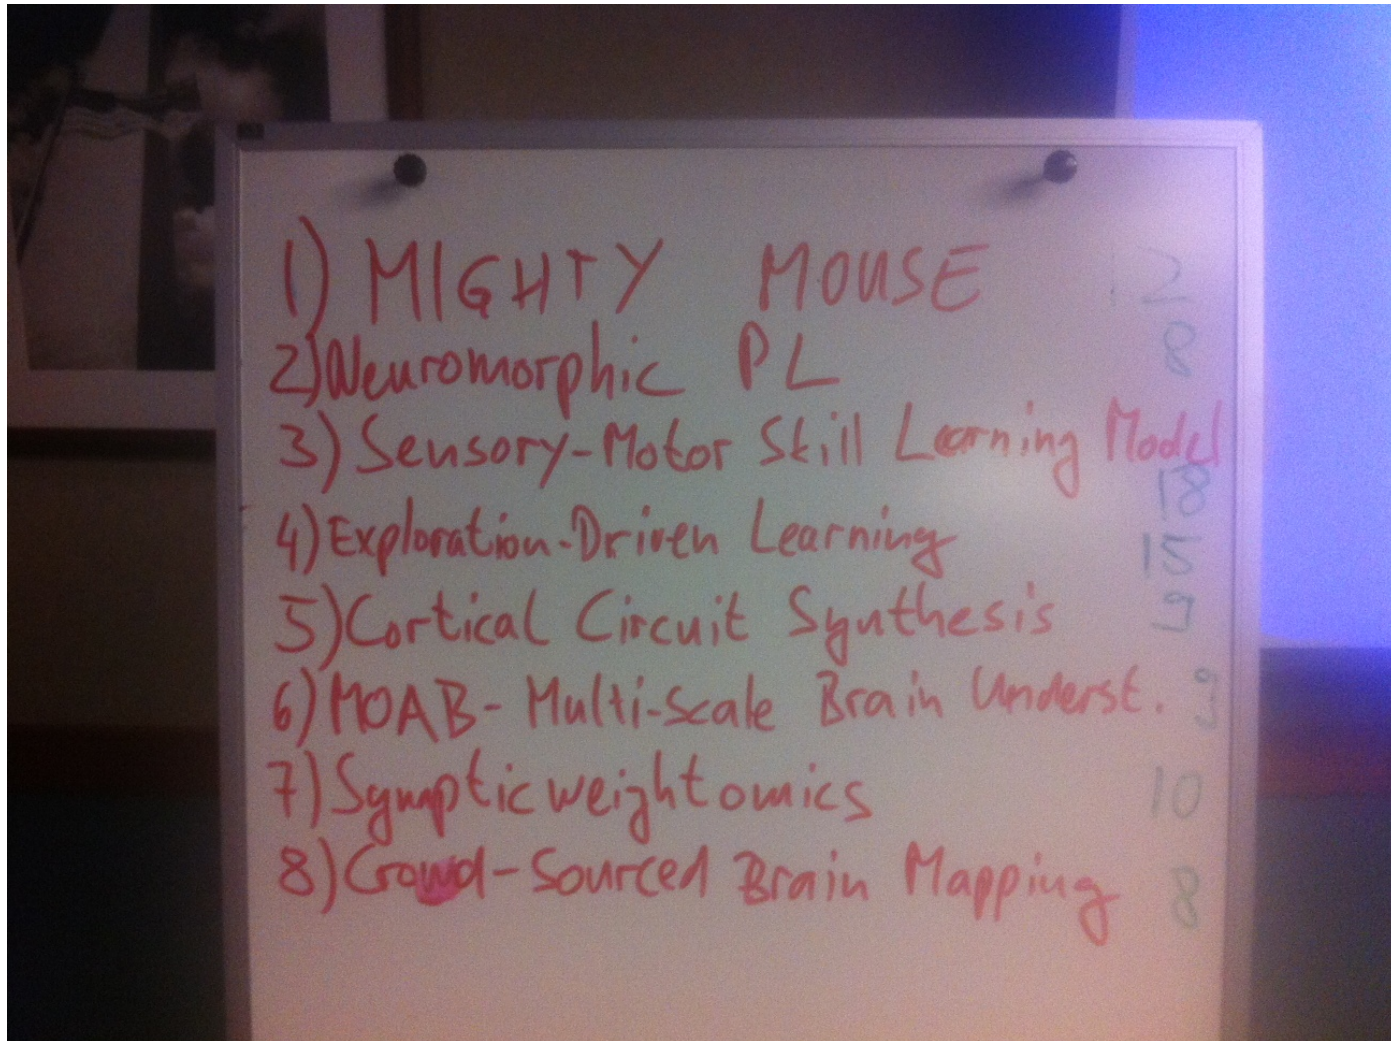 1) MIGHTY MOUSE 12
2) Neuromorphic PL 8
3) Sensory-Motor Skill Learning Model
18
4) Exploration-Driven Learning 15
5) Cortical Circuit Synthesis
6) MOAB- Multi-Scale Brain Underst.
7) Synapticweightomics 10
8) Crowd-Sourced Brain Mapping 8